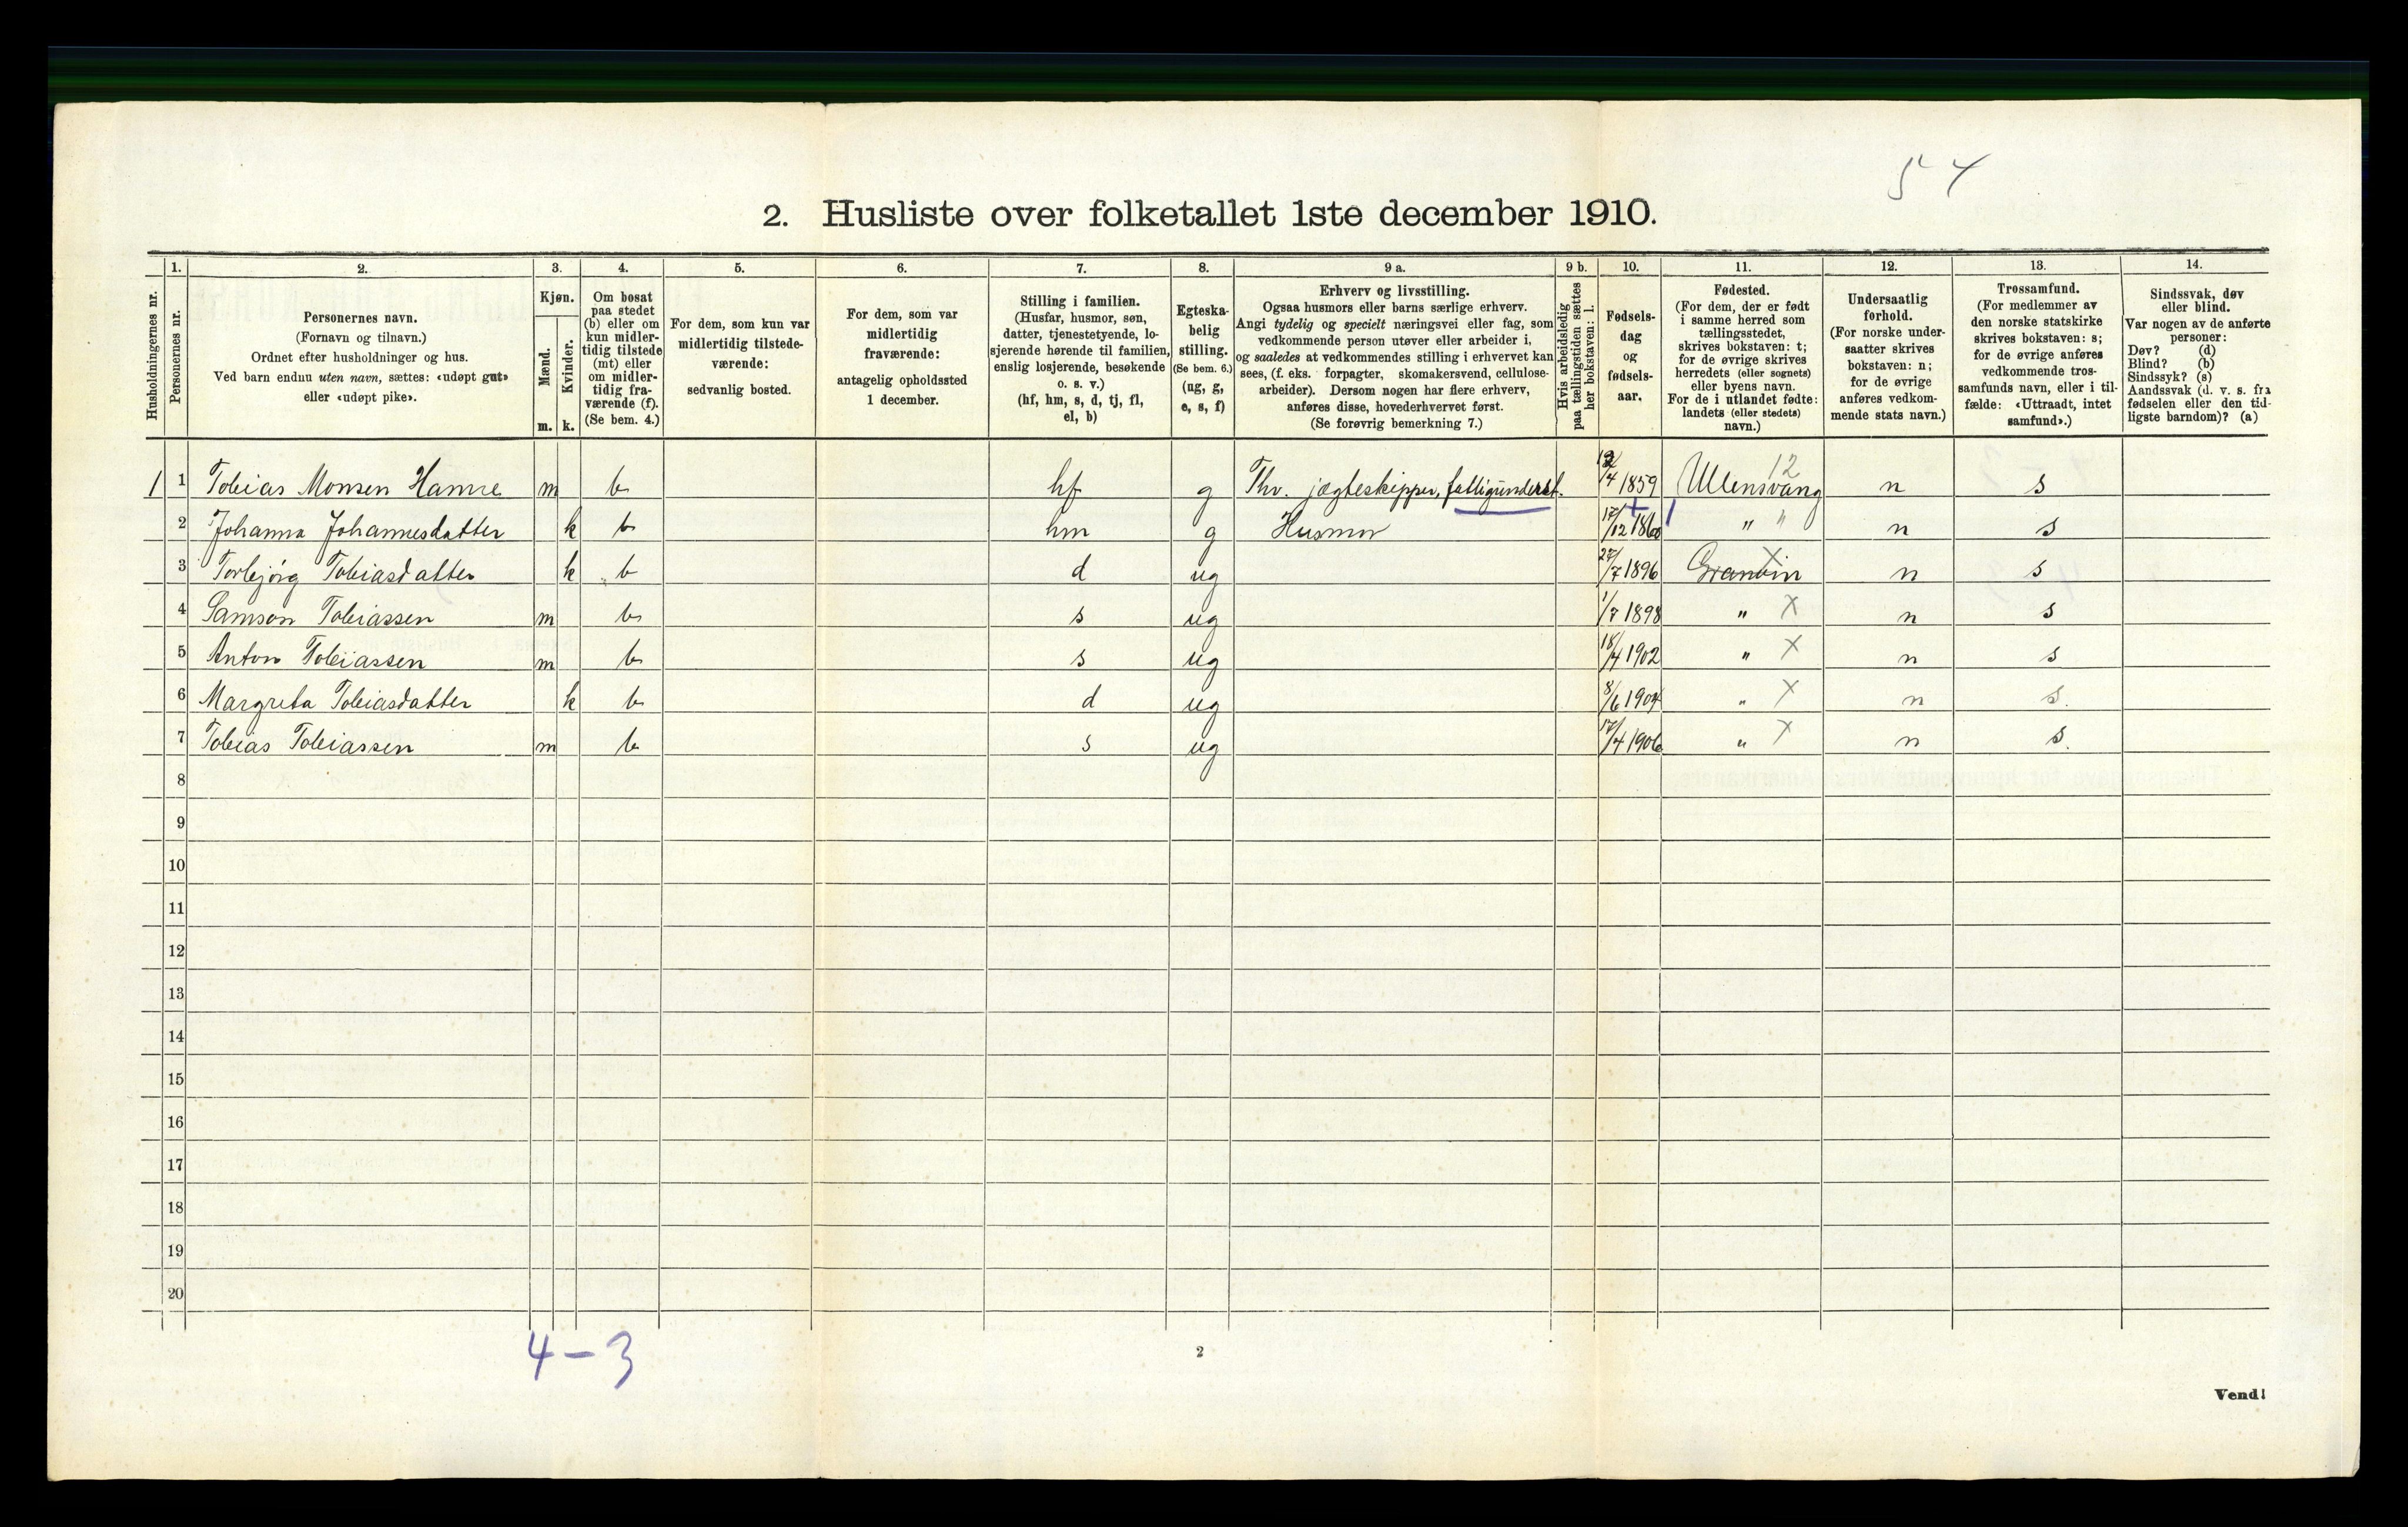 54
2. Husliste over folketallet 1ste december 1910.
Husholdningernes nr.
1.
Personernes nr.
2.
Personernes navn.
(Fornavn og tilnavn.)
Ordnet efter husholdninger og hus.
Ved barn endnu uten navn, sættes: «udøpt gut»
eller «udøpt pike».
3.
Kjøn.
Mænd.
Kvinder.
m. k.
4.
Om bosat
paa stedet
(b) eller om
kun midler-
tidig tilstede
(mt) eller
om midler-
tidig fra-
værende (f).
(Se bem. 4.)
5.
For dem, som kun var
midlertidig tilstede-
værende:
sedvanlig bosted.
6.
For dem, som var
midlertidig
fraværende:
antagelig opholdssted
1 december.
7.
Stilling i familien.
(Husfar, husmor, søn,
datter, tjenestetyende, lo-
sjerende hørende til familien,
enslig losjerende, besøkende
o. s. v.)
(hf, hm, s, d, tj, fl,
el, b)
8.
Egteska-
belig
stilling.
(Se bem. 6.)
(ug, g,
e, s, f)
9 a.
Erhverv og livsstilling.
Ogsaa husmors eller barns særlige erhverv.
Angi tydelig og specielt næringsvei eller fag, som
vedkommende person utøver eller arbeider i,
og saaledes at vedkommendes stilling i erhvervet kan
sees, (f. eks. forpagter, skomakersvend, cellulose-
arbeider). Dersom nogen har flere erhverv,
anføres disse, hovederhvervet først.
(Se forøvrig bemerkning 7.)
9 b.
Hvis arbeidsledig
paa tællingstiden sættes
her bokstaven: l.
10.
Fødsels-
dag
og
fødsels-
aar.
11.
Fødested.
(For dem, der er født
i samme herred som
tællingsstedet,
skrives bokstaven: t;
for de øvrige skrives
herredets (eller sognets)
eller byens navn.
For de i utlandet fødte:
landets (eller stedets)
navn.)
12.
Undersaatlig
forhold.
(For norske under-
saatter skrives
bokstaven: n;
for de øvrige
anføres vedkom-
mende stats navn.)
13.
Trossamfund.
(For medlemmer av
den norske statskirke
skrives bokstaven: s;
for de øvrige anføres
vedkommende tros-
samfunds navn, eller i til-
fælde: «Uttraadt, intet
samfund».)
14.
Sindssvak, døv
eller blind.
Var nogen av de anførte
personer:
Døv? (d)
Blind? (b)
Sindssyk? (s)
Aandssvak (d. v. s. fra
fødselen eller den tid-
ligste barndom)? (a)
1 1 Tobias Monsen Hamre m b hf g Thv. jægteskipper, fattigunderst. /4 1859 Ullensvang 12 n s
2 Johanna Johannesdatter k b hm g Husmor 17/12 1860 " " n s
3 Torbjørg Tobiasdatter k b d ug 27/7 1896 Granvin X n s
4 Samson Tobiassen m b s ug 1/7 1898 " X n s
5 Anton Tobiassen m b s ug 18/4 1902 " X n s
6 Margreta Tobiasdatter k b d ug 8/6 1904 " X n s.
7 Tobias Tobiassen m b s ug 17/4 1906 " X n s.
8
9
10
11
12
13
14
15
16
17
18
19
20
4-3
2
Vend!